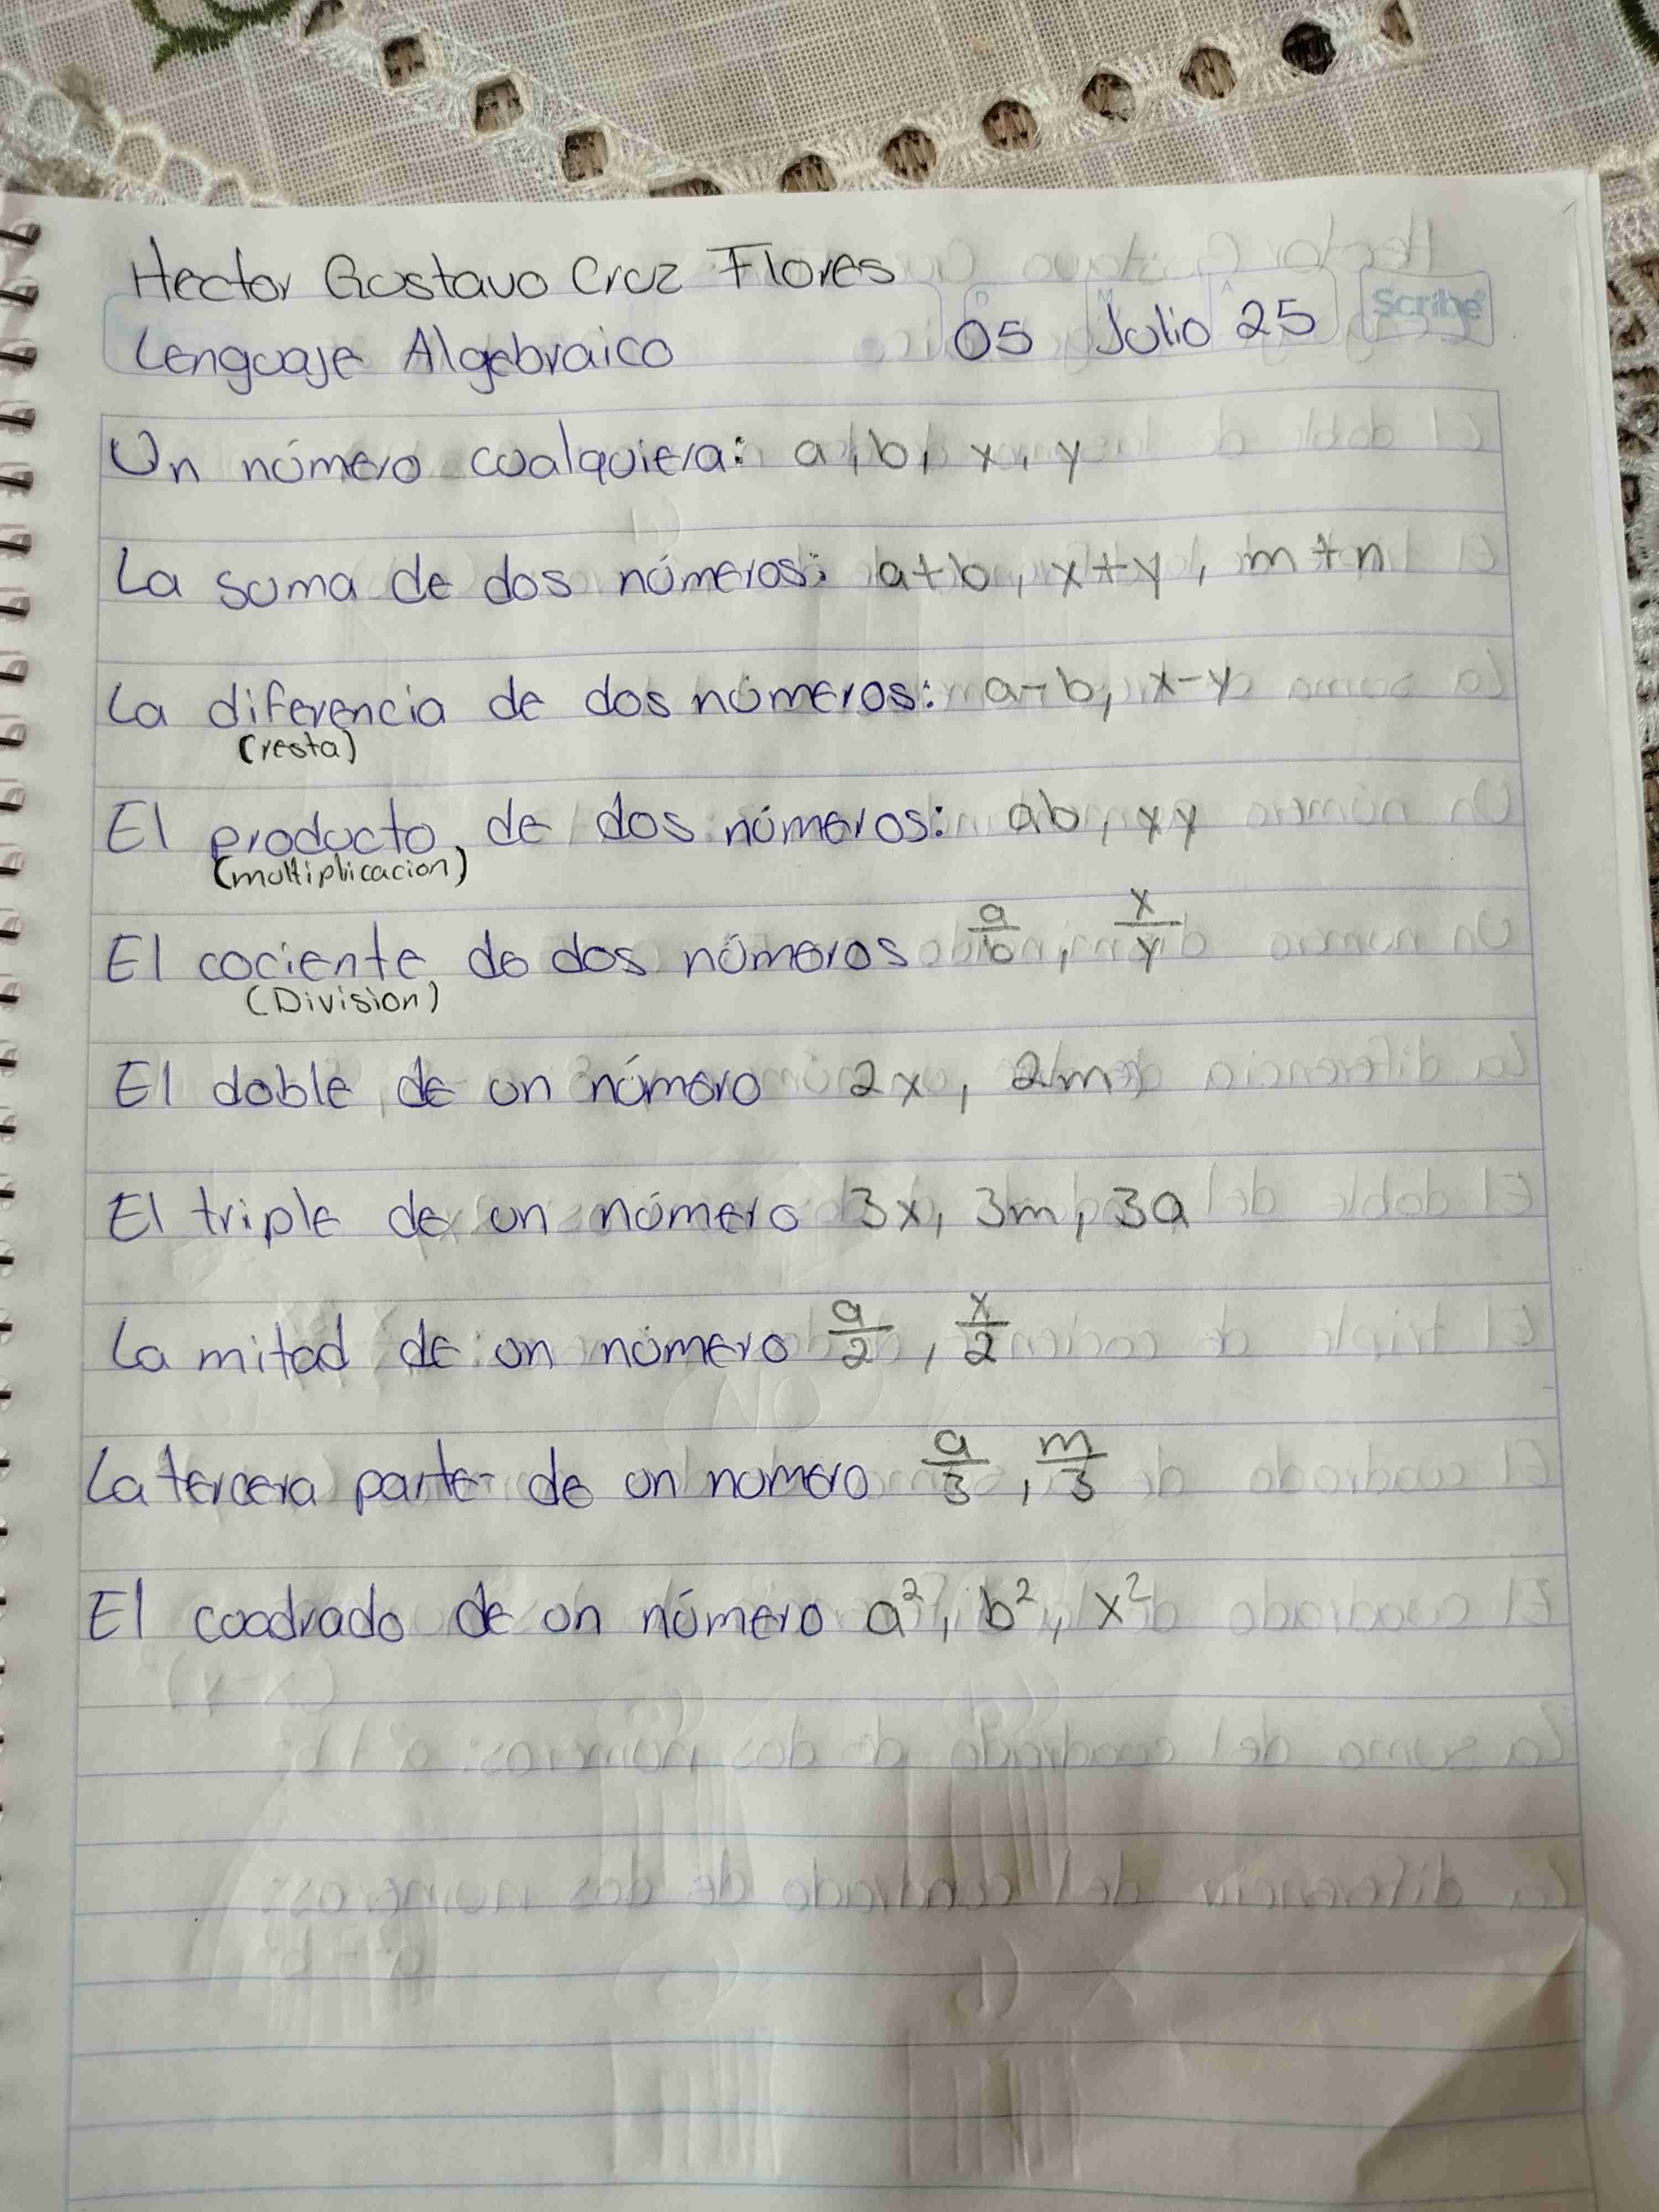 Hector Gustavo Cruz Flores
Lenguaje Algebraico 05 Julio 25 Scribe
Un número cualquiera: a, b, x, y
La suma de dos números: a+b, x+y, m+n
La diferencia de dos números: a-b, x-y
(resta)
El producto de dos números: ab, xy
(multiplicacion)
El cociente de dos números a/b, x/y
(Division)
El doble de un número 2x, 2m
El triple de un número 3x, 3m, 3a
La mitad de un número a/2, x/2
La tercera parte de un numero a/3, m/3
El cuadrado de un número a², b², x²